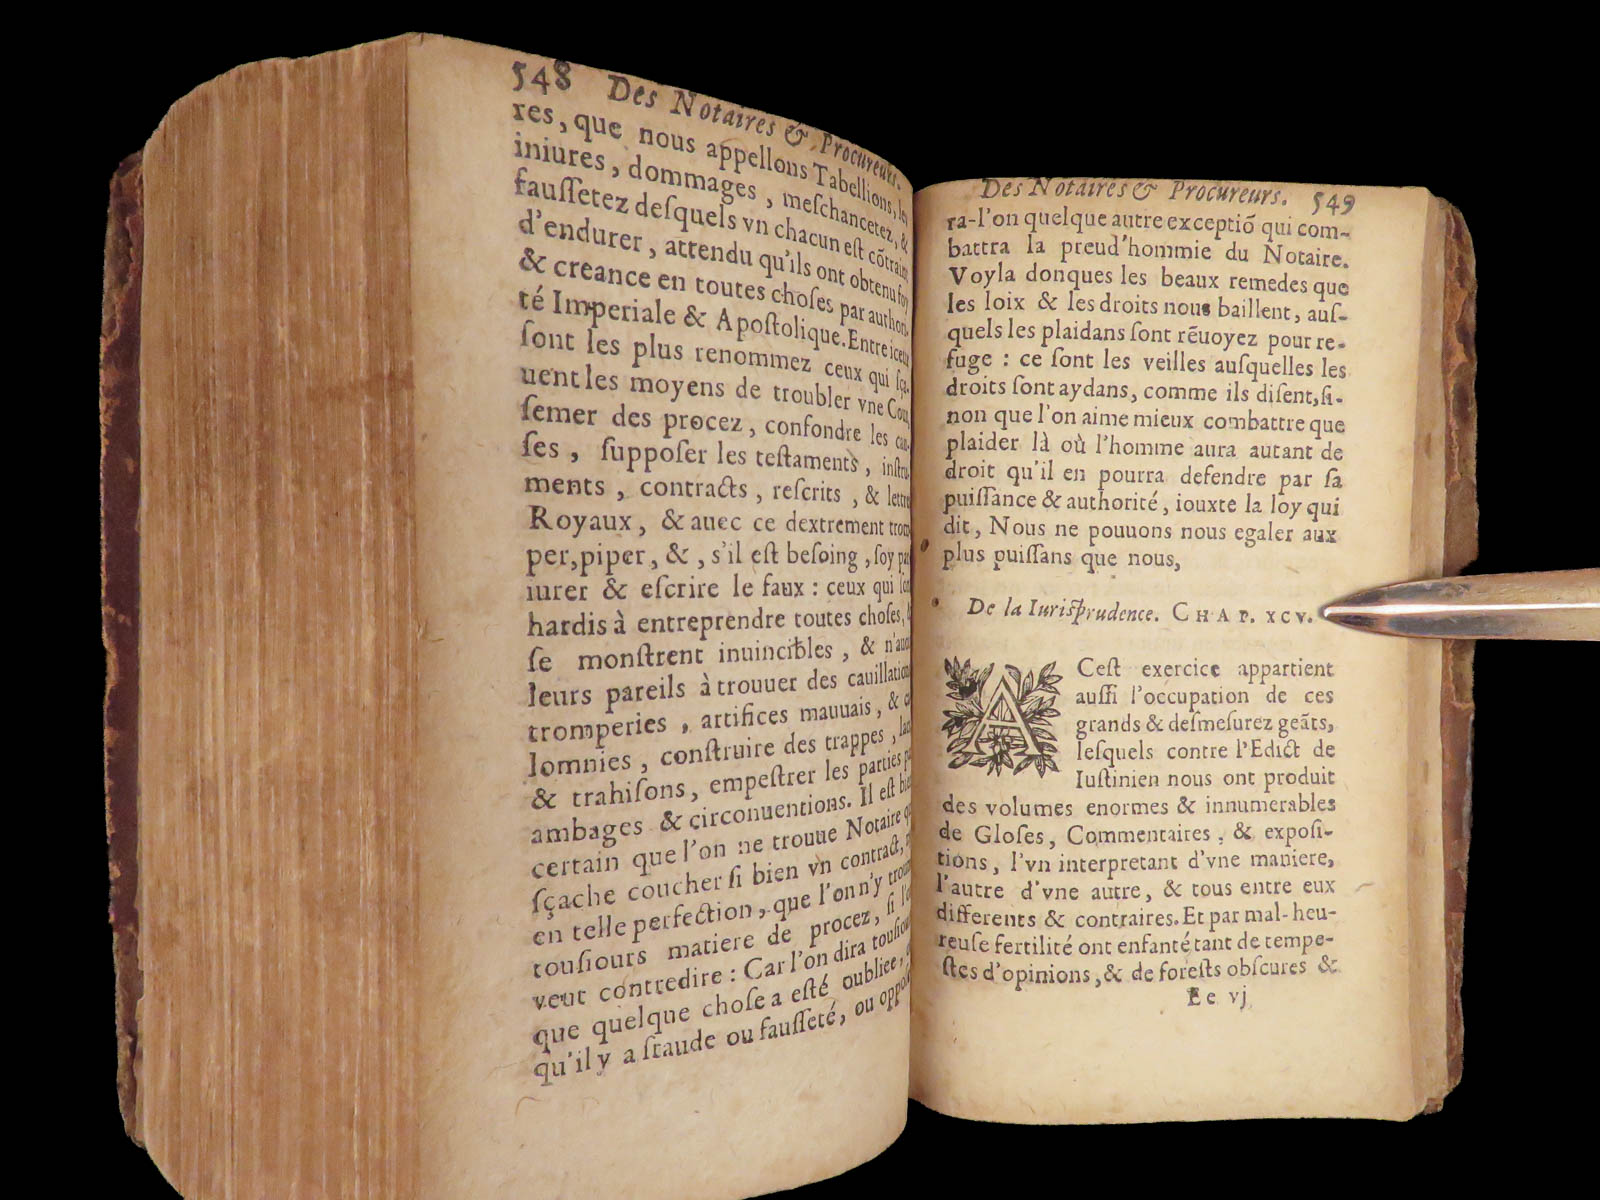 548 Des Notaires & Procureurs.
res, que nous appellons Tabellions, les
iniures, dommages, meſchancetez, &
fauſſetez deſquels vn chacun eſt cõtraint
d'endurer, attendu qu'ils ont obtenu foy
& creance en toutes choſes par authori-
té Imperiale & Apoſtolique. Entre iceux
ſont les plus renommez ceux qui ſça-
uent les moyens de troubler vne Cour,
ſemer des procez, confondre les cau-
ſes, ſuppoſer les teſtaments, inſtru-
ments, contracts, reſcrits, & lettres
Royaux, & auec ce dextrement trom-
per, piper, &, s'il eſt beſoing, ſoy par-
iurer & eſcrire le faux: ceux qui ſont
hardis à entreprendre toutes choſes,
ſe monſtrent inuincibles, & n'ont
leurs pareils à trouuer des cauillations
tromperies, artifices mauuais, & ca-
lomnies, conſtruire des trappes,
& trahiſons, empeſtrer les parties par
ambages & circonuentions. Il eſt bien
certain que l'on ne trouue Notaire qui
ſçache coucher ſi bien vn contract,
en telle perfection, que l'on n'y trouue
touſiours matiere de procez, ſi l'on
veut contredire: Car l'on dira touſiours
que quelque choſe a eſté oubliee,
qu'il y a fraude ou fauſſeté, ou oppoſe-
Des Notaires & Procureurs. 549
ra-l'on quelque autre exceptiõ qui com-
battra la preud'hommie du Notaire.
Voyla donques les beaux remedes que
les loix & les droits nous baillent, auſ-
quels les plaidans ſont rẽuoyez pour re-
fuge: ce ſont les veilles auſquelles les
droits ſont aydans, comme ils diſent, ſi-
non que l'on aime mieux combattre que
plaider là où l'homme aura autant de
droit qu'il en pourra defendre par ſa
puiſſance & authorité, iouxte la loy qui
dit, Nous ne pouuons nous egaler aux
plus puiſſans que nous,
De la Iuriſprudence. CHAP. XCV.
A Ceſt exercice appartient
auſſi l'occupation de ces
grands & deſmeſurez geãts,
leſquels contre l'Edict de
Iuſtinien nous ont produit
des volumes enormes & innumerables
de Gloſes, Commentaires, & expoſi-
tions, l'vn interpretant d'vne maniere,
l'autre d'vne autre, & tous entre eux
differents & contraires. Et par mal-heu-
reuſe fertilité ont enfanté tant de tempe-
ſtes d'opinions, & de foreſts obſcures &
Ee vj